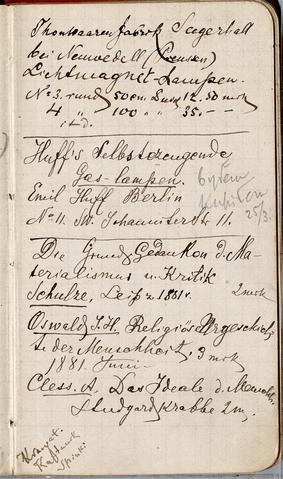 Thonwaaren Fabrik Seegerhall
bei Neuwedell (Preussen)
Lichtmagnet-Lampen.
No 3. rund 50 cm 12.50 mrk
4 " 100 " " 35.—
itd.
Huff's Selbsterzeugende
Gas-lampen.
Emil Huff Berlin
No 11. SW. Johanniterstr 11.
25/3
Die Grund Gedanken d. Ma-
terialismus u. Kritik
Schulze, Leipz 1881.
2 mrk
Oswald, J. H. Religiös Urgeschicht
te der Menschheit, 3 mrk
1881
Cless. A. Das Ideale d. Mensch.
Studgard Krabbe 2 m.
Krawat.
Spinki